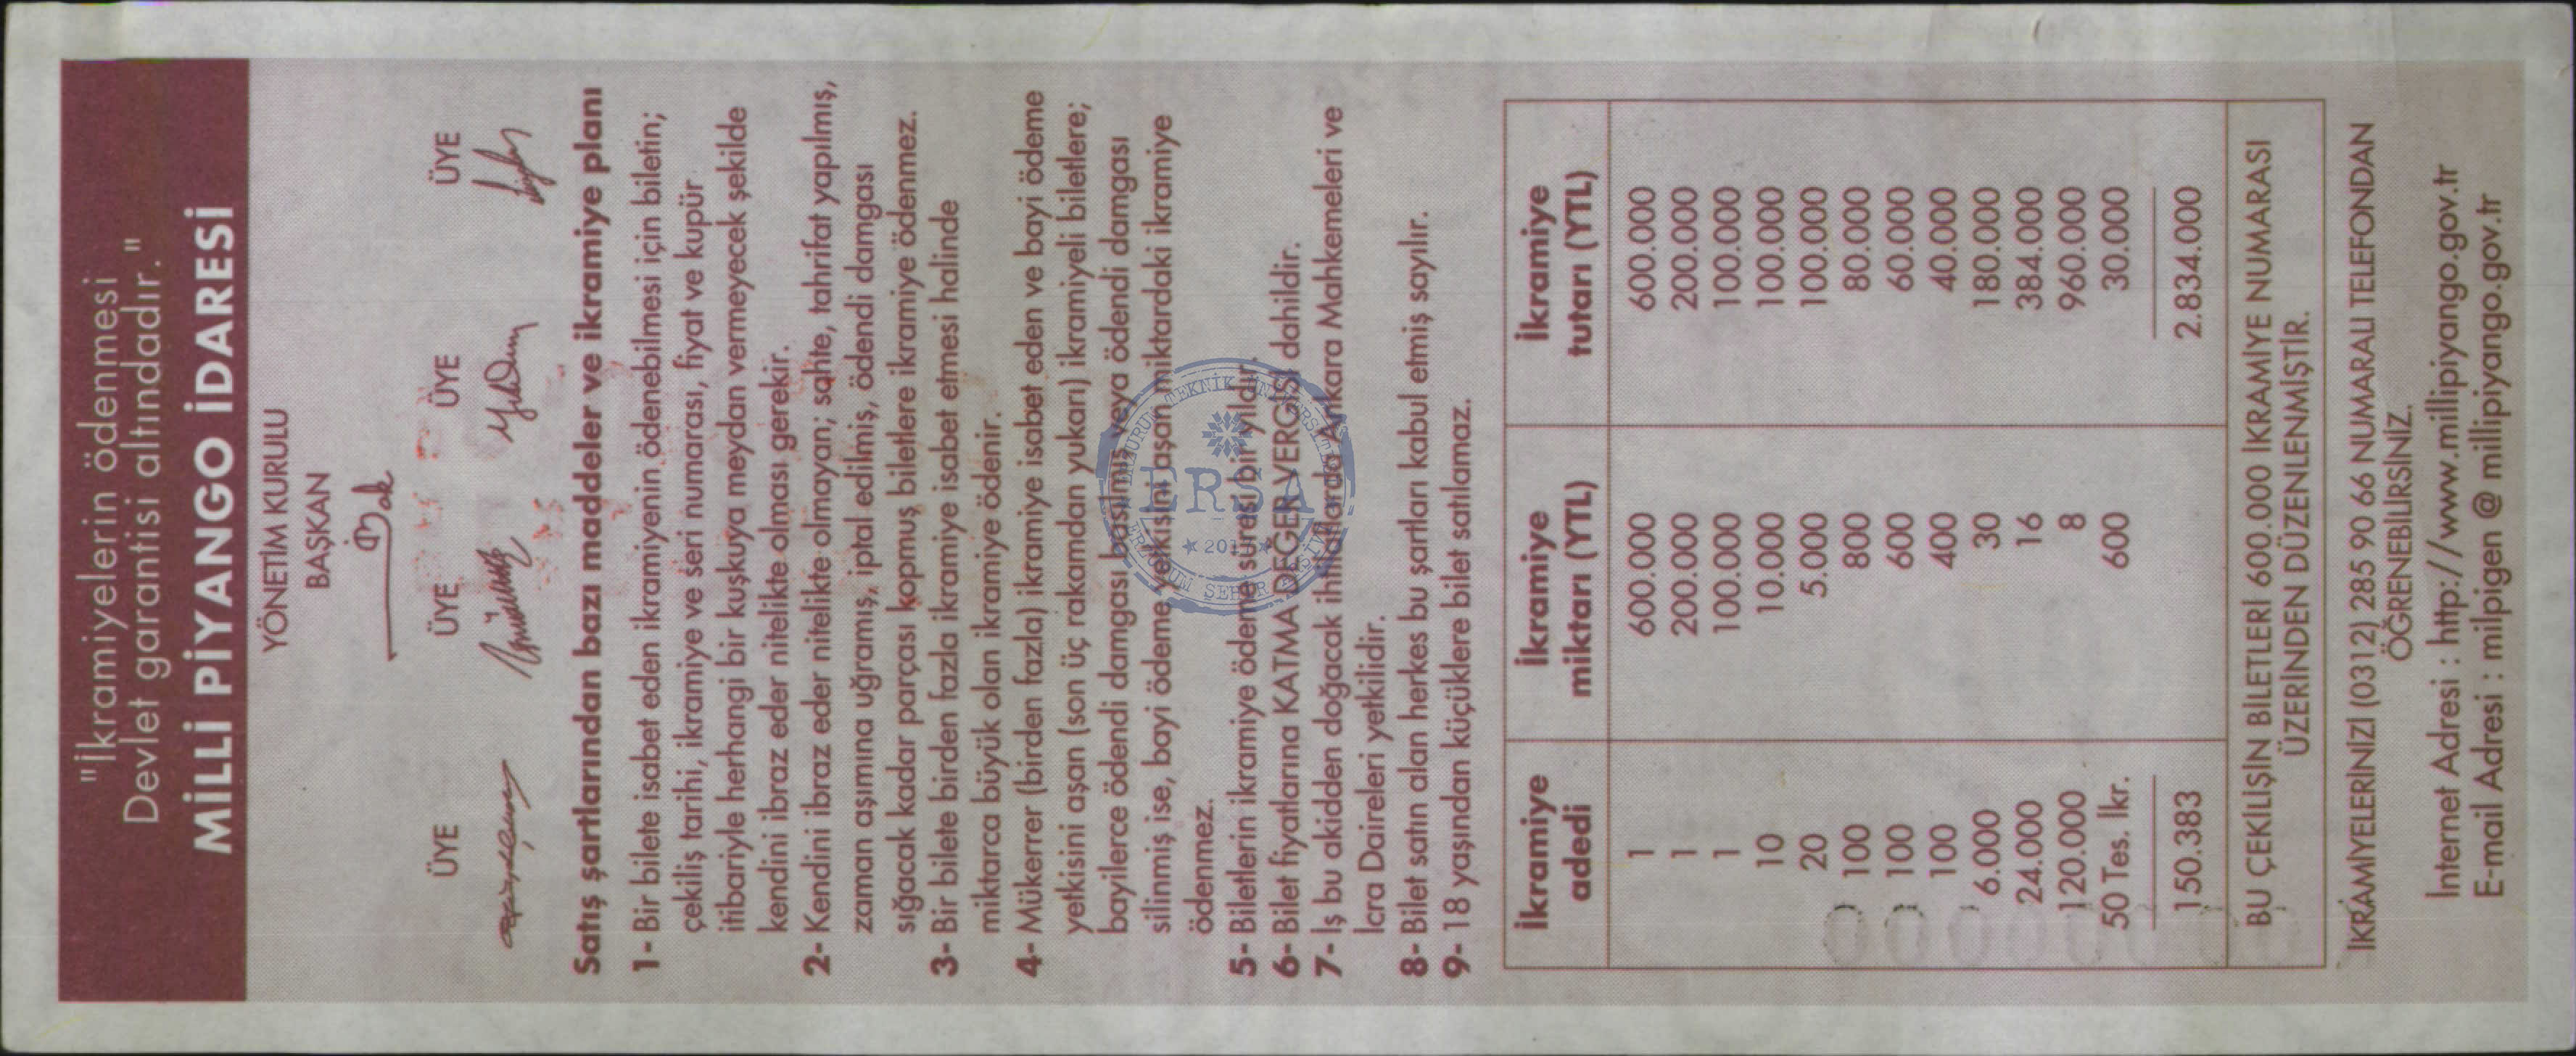 "İkramiyelerin ödenmesi
Devlet garantisi altındadır."
MİLLİ PİYANGO İDARESİ
YÖNETİM KURULU
BAŞKAN
ÜYE ÜYE ÜYE ÜYE
Satış şartlarından bazı maddeler ve ikramiye planı
1- Bir bilete isabet eden ikramiyenin ödenebilmesi için biletin;
çekiliş tarihi, ikramiye ve seri numarası, fiyat ve kupür
itibariyle herhangi bir kuşkuya meydan vermeyecek şekilde
kendini ibraz eder nitelikte olması gerekir.
2- Kendini ibraz eder nitelikte olmayan; sahte, tahrifat yapılmış,
zaman aşımına uğramış, iptal edilmiş, ödendi damgası
sığacak kadar parçası kopmuş biletlere ikramiye ödenmez.
3- Bir bilete birden fazla ikramiye isabet etmesi halinde
miktarca büyük olan ikramiye ödenir.
4- Mükerrer (birden fazla) ikramiye isabet eden ve bayi ödeme
yetkisini aşan (son üç rakamdan yukarı) ikramiyeli biletlere;
bayilerce ödendi damgası basılmış veya ödendi damgası
silinmiş ise, bayi ödeme yetkisini aşan miktardaki ikramiye
ödenmez.
5- Biletlerin ikramiye ödeme süresi bir yıldır.
6- Bilet fiyatlarına KATMA DEĞER VERGİSİ dahildir.
7- İş bu akidden doğacak ihtilaflarda Ankara Mahkemeleri ve
İcra Daireleri yetkilidir.
8- Bilet satın alan herkes bu şartları kabul etmiş sayılır.
9- 18 yaşından küçüklere bilet satılamaz.
İkramiye İkramiye İkramiye
adedi miktarı (YTL) tutarı (YTL)
1 600.000 600.000
1 200.000 200.000
1 100.000 100.000
10 10.000 100.000
20 5.000 100.000
100 800 80.000
100 600 60.000
100 400 40.000
6.000 30 180.000
24.000 16 384.000
120.000 8 960.000
50 Tes. İkr. 600 30.000
150.383 2.834.000
BU ÇEKİLİŞİN BİLETLERİ 600.000 İKRAMİYE NUMARASI
ÜZERİNDEN DÜZENLENMİŞTİR.
İKRAMİYELERİNİZİ (0312) 285 90 66 NUMARALI TELEFONDAN
ÖĞRENEBİLİRSİNİZ.
İnternet Adresi : http://www.millipiyango.gov.tr
E-mail Adresi : milpigen @ millipiyango.gov.tr
ERZURUM TEKNİK ÜNİVERSİTESİ
ERSA
ERZURUM ŞEHİR ARŞİVİ